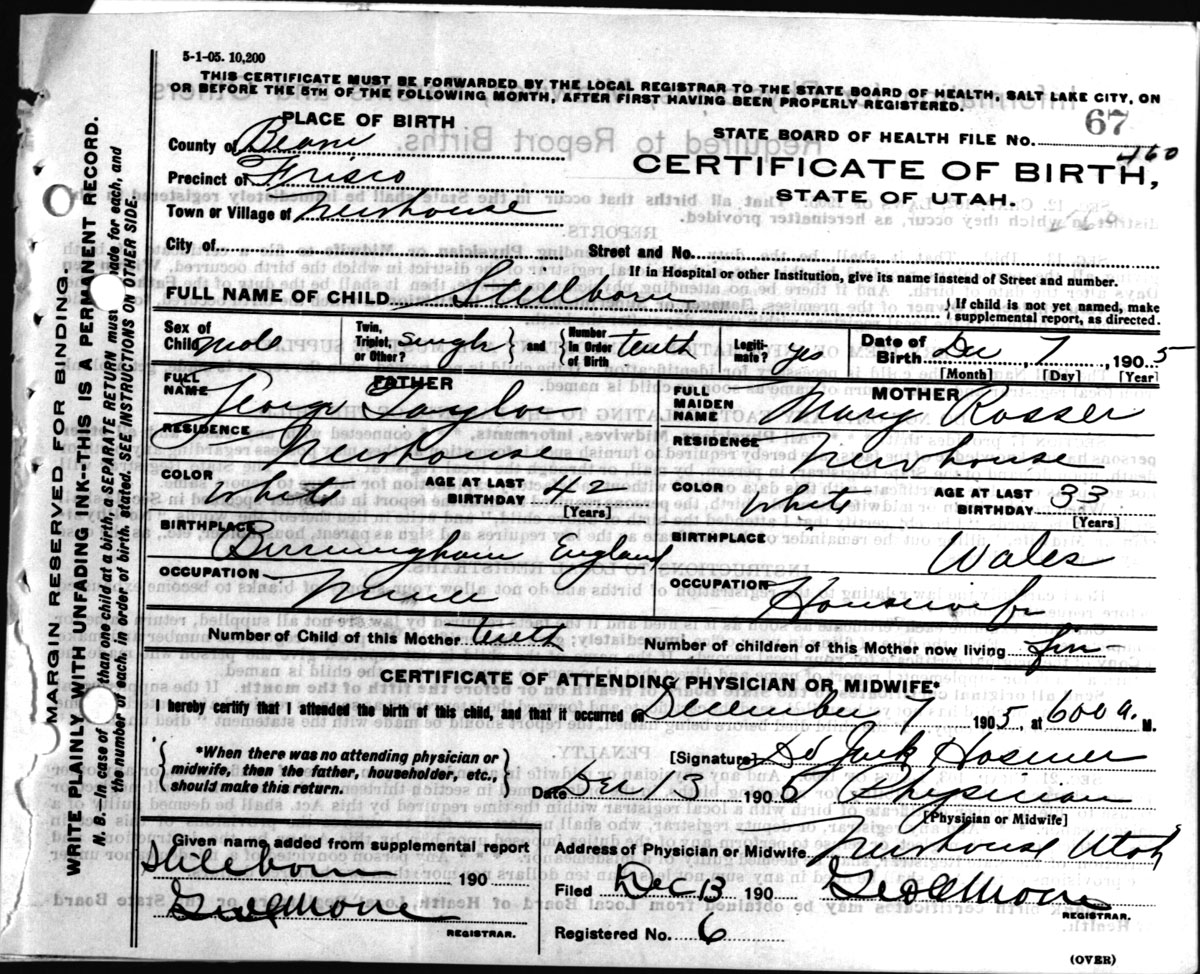 5-1-05. 10,200
THIS CERTIFICATE MUST BE FORWARDED BY THE LOCAL REGISTRAR TO THE STATE BOARD OF HEALTH, SALT LAKE CITY, ON
OR BEFORE THE 5TH OF THE FOLLOWING MONTH, AFTER FIRST HAVING BEEN PROPERLY REGISTERED.
PLACE OF BIRTH
County of
Precinct of Frisco
Town or Village of Newhouse
City of
STATE BOARD OF HEALTH FILE No. 67
460
CERTIFICATE OF BIRTH,
STATE OF UTAH.
Street and No.
If in Hospital or other Institution, give its name instead of Street and number.
FULL NAME OF CHILD Stillborn
If child is not yet named, make
supplemental report, as directed.
Sex of Child Male
Twin, Triplet, or Other? single and Number In Order of Birth tenth
Legiti-mate? yes
Date of Birth Dec 7, 1905
[Month] [Day] [Year]
FATHER
FULL NAME George Taylor
RESIDENCE Newhouse
COLOR White AGE AT LAST BIRTHDAY 42
[Years]
BIRTHPLACE Birmingham England
OCCUPATION
MOTHER
FULL MAIDEN NAME Mary Rosser
RESIDENCE Newhouse
COLOR White AGE AT LAST BIRTHDAY 33
[Years]
BIRTHPLACE Wales
OCCUPATION Housewife
Number of Child of this Mother tenth
Number of children of this Mother now living
CERTIFICATE OF ATTENDING PHYSICIAN OR MIDWIFE*
I hereby certify that I attended the birth of this child, and that it occurred on December 7 1905, at 600 a. M.
*When there was no attending physician or
midwife, then the father, householder, etc.,
should make this return.
[Signature] Hosmer
Date Dec 13 190
Physician
[Physician or Midwife]
Given name added from supplemental report
Stillborn 190
REGISTRAR.
Address of Physician or Midwife Newhouse Utah
Filed Dec 13 190
REGISTRAR.
Registered No. 6
(OVER)
MARGIN RESERVED FOR BINDING.
WRITE PLAINLY WITH UNFADING INK--THIS IS A PERMANENT RECORD.
N. B.--In case of than one child at a birth, a SEPARATE RETURN must made for each, and
the number of each, in order of birth, stated. SEE INSTRUCTIONS ON OTHER SIDE.